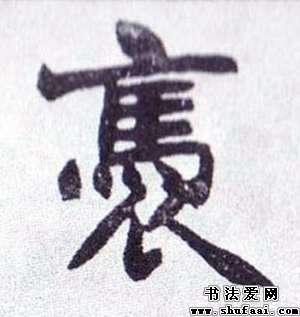 褭
书法爱网
www.shufaai.com